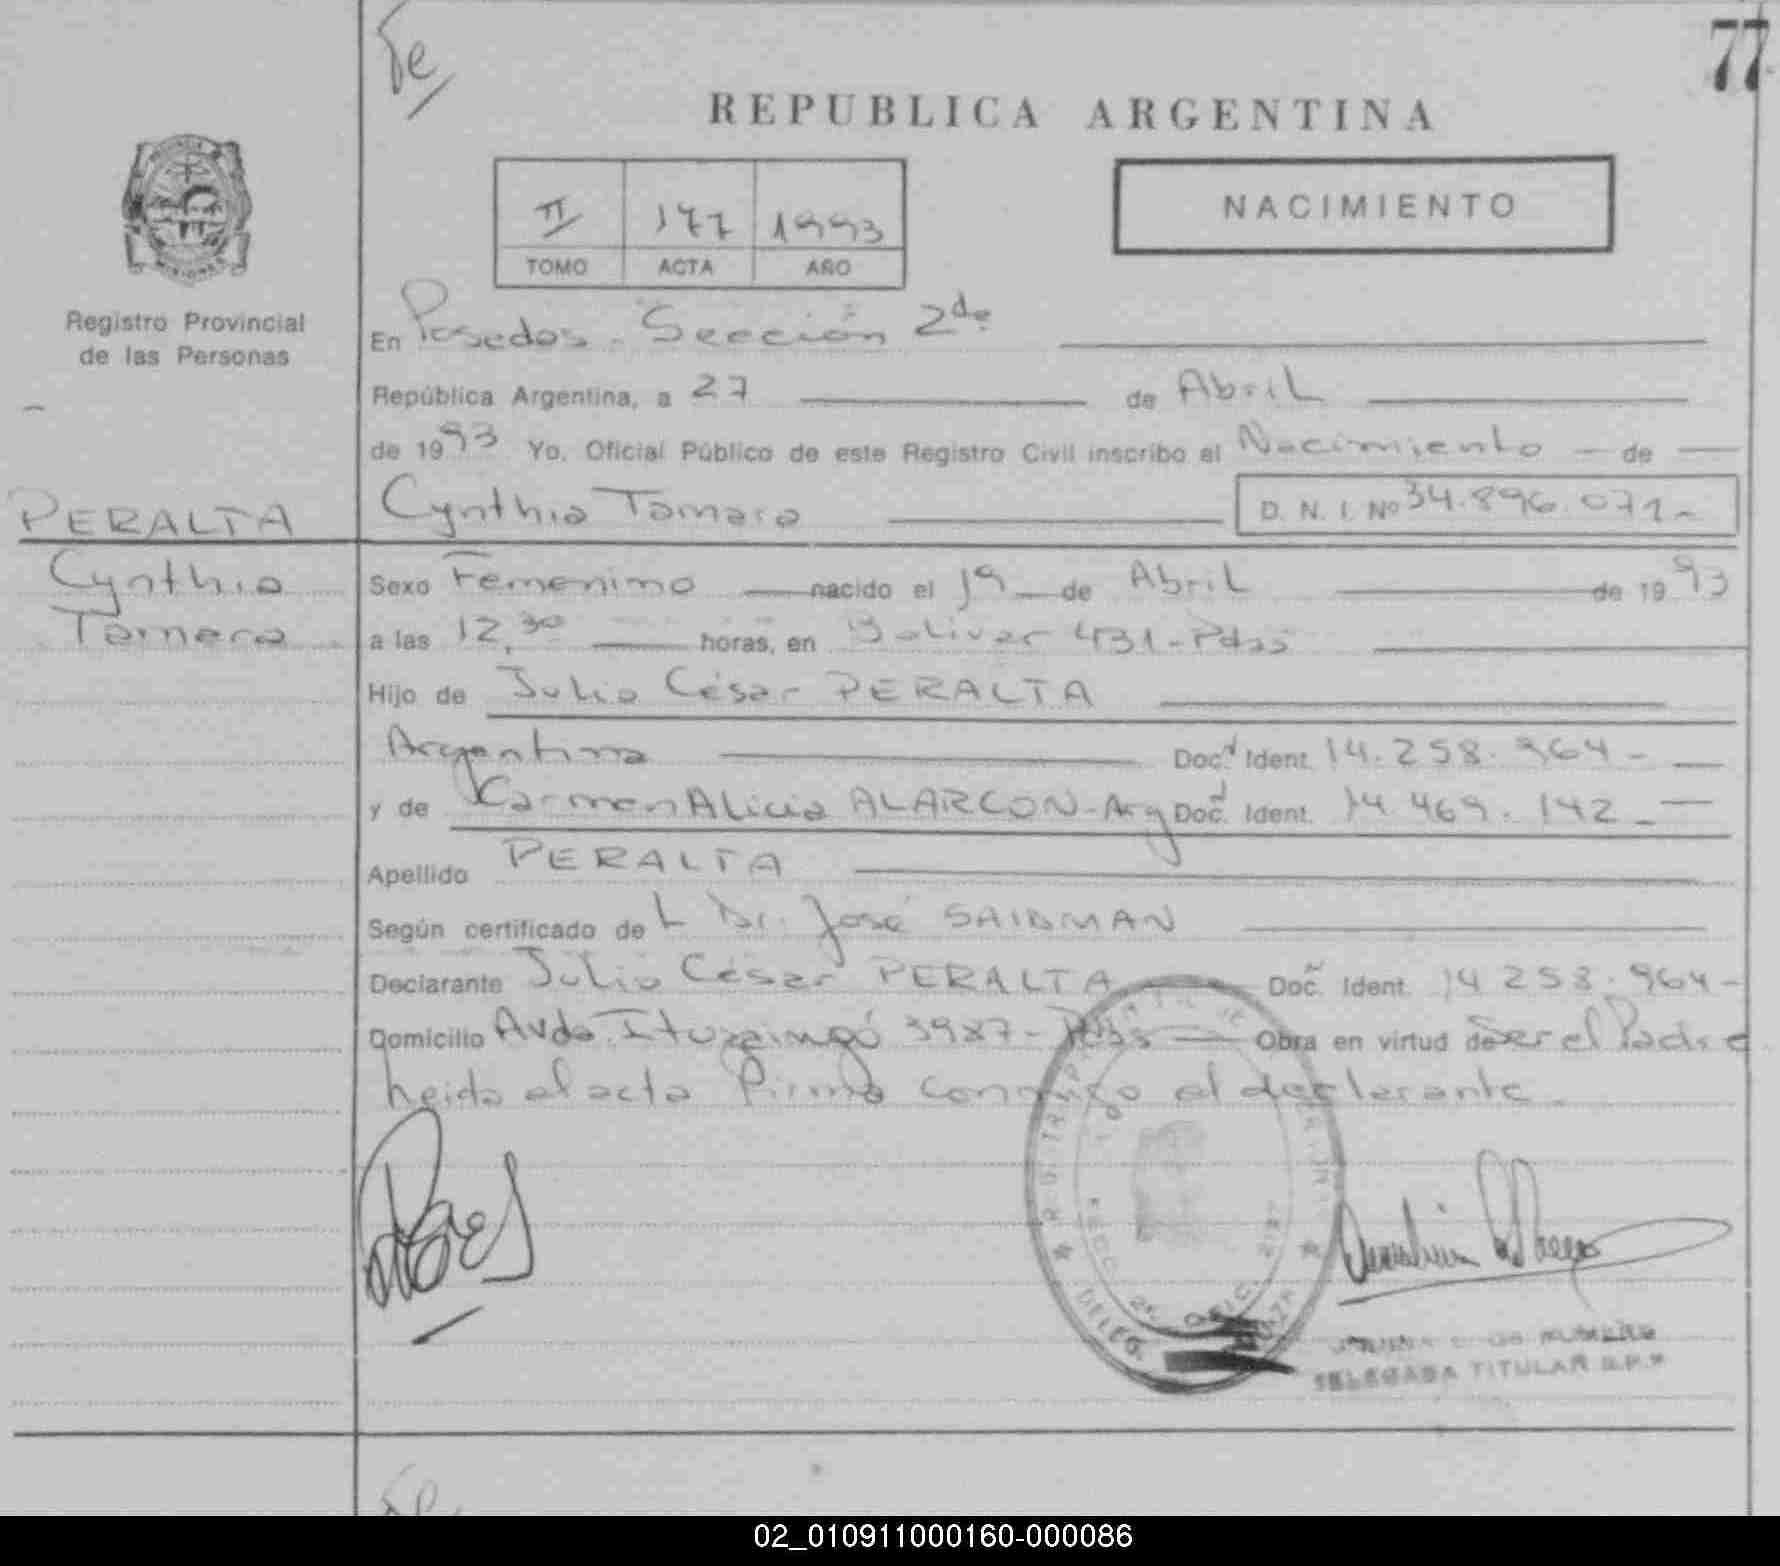 77
REPUBLICA ARGENTINA
NACIMIENTO
II 177 1993
TOMO ACTA AÑO
MISIONES
Registro Provincial
de las Personas
En Posadas - Sección 2da
República Argentina, a 27 de Abril
de 1993 Yo, Oficial Público de este Registro Civil inscribo el Nacimiento de
PERALTA
Cynthia Tamara
D. N. I. Nº 34.896.071-
Cynthia
Tamara
Sexo Femenino nacido el 19 de Abril de 1993
a las 12,30 horas, en Bolivar 431-Pdas
Hijo de Julio César PERALTA
Argentina Doc. Ident. 14.258.964-
y de Carmen Alicia ALARCON-Arg Doc. Ident. 14.469.142-
Apellido PERALTA
Según certificado de L Dr. José SAIDMAN
Declarante Julio César PERALTA Doc. Ident. 14 258.964-
Domicilio Avda. Ituzaingó 3987-Pdas Obra en virtud de Ser el Padre
Leida el acta Firma conmigo el declarante.
DELEGADA TITULAR R.P.P
02_010911000160-000086